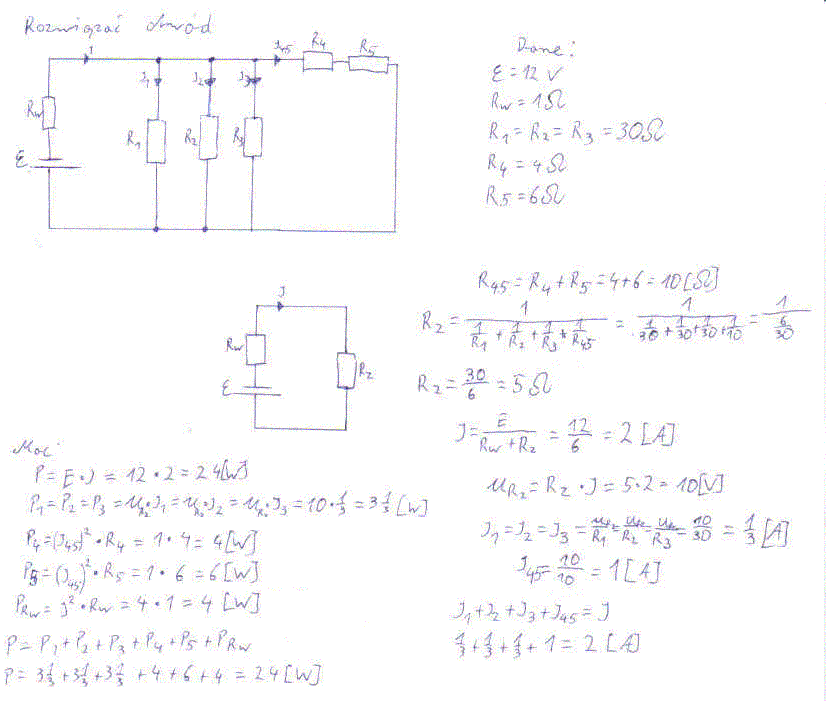 Rozwiązać obwód
I
I₁ I₂ I₃ I₄₅ R₄ R₅
Rw R₁ R₂ R₃
ε
Dane:
ε = 12 V
Rw = 1Ω
R₁ = R₂ = R₃ = 30Ω
R₄ = 4Ω
R₅ = 6Ω
R₄₅ = R₄ + R₅ = 4+6 = 10 [Ω]
Rz = 1/(1/R₁ + 1/R₂ + 1/R₃ + 1/R₄₅) = 1/(1/30 + 1/30 + 1/30 + 1/10) = 1/(6/30)
Rz = 30/6 = 5 Ω
I
Rw
ε
Rz
I = E/(Rw + Rz) = 12/6 = 2 [A]
URz = Rz · I = 5·2 = 10 [V]
I₁ = I₂ = I₃ = URz/R₁ = URz/R₂ = URz/R₃ = 10/30 = 1/3 [A]
I₄₅ = 10/10 = 1 [A]
I₁ + I₂ + I₃ + I₄₅ = I
1/3 + 1/3 + 1/3 + 1 = 2 [A]
Moc:
P = E · I = 12 · 2 = 24 [W]
P₁ = P₂ = P₃ = URz·I₁ = URz·I₂ = URz·I₃ = 10 · 1/3 = 3 1/3 [W]
P₄ = (I₄₅)² · R₄ = 1 · 4 = 4 [W]
P₅ = (I₄₅)² · R₅ = 1 · 6 = 6 [W]
PRw = I² · Rw = 4 · 1 = 4 [W]
P = P₁ + P₂ + P₃ + P₄ + P₅ + PRw
P = 3 1/3 + 3 1/3 + 3 1/3 + 4 + 6 + 4 = 24 [W]